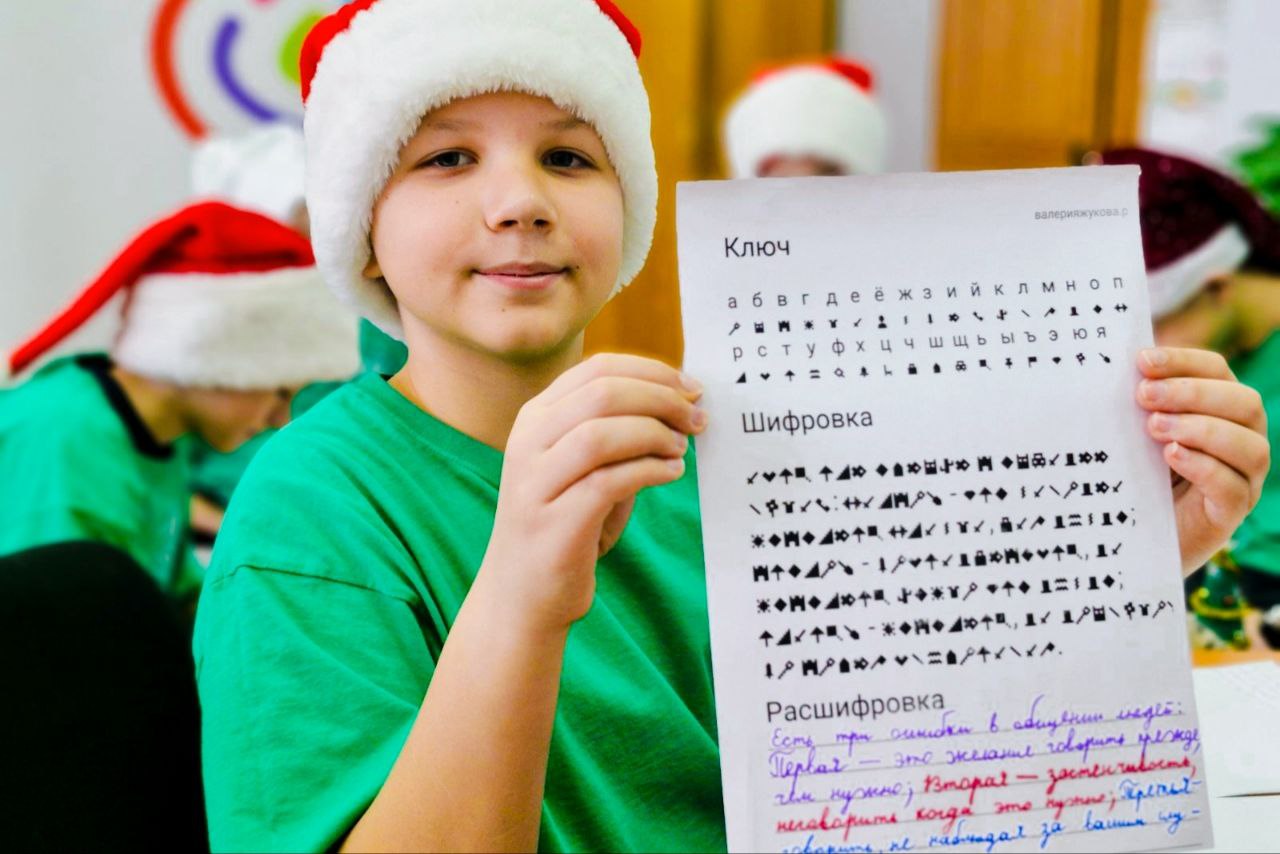 валерияжукова.р
Ключ
а б в г д е ё ж з и й к л м н о п
р с т у ф х ц ч ш щ ь ы ъ э ю я
Шифровка
Расшифровка
Есть три ошибки в общении людей:
Первая — это желание говорить прежде,
чем нужно; Вторая — застенчивость,
неговорить когда это нужно; Третья-
говорить, не наблюдая за вашим слу-